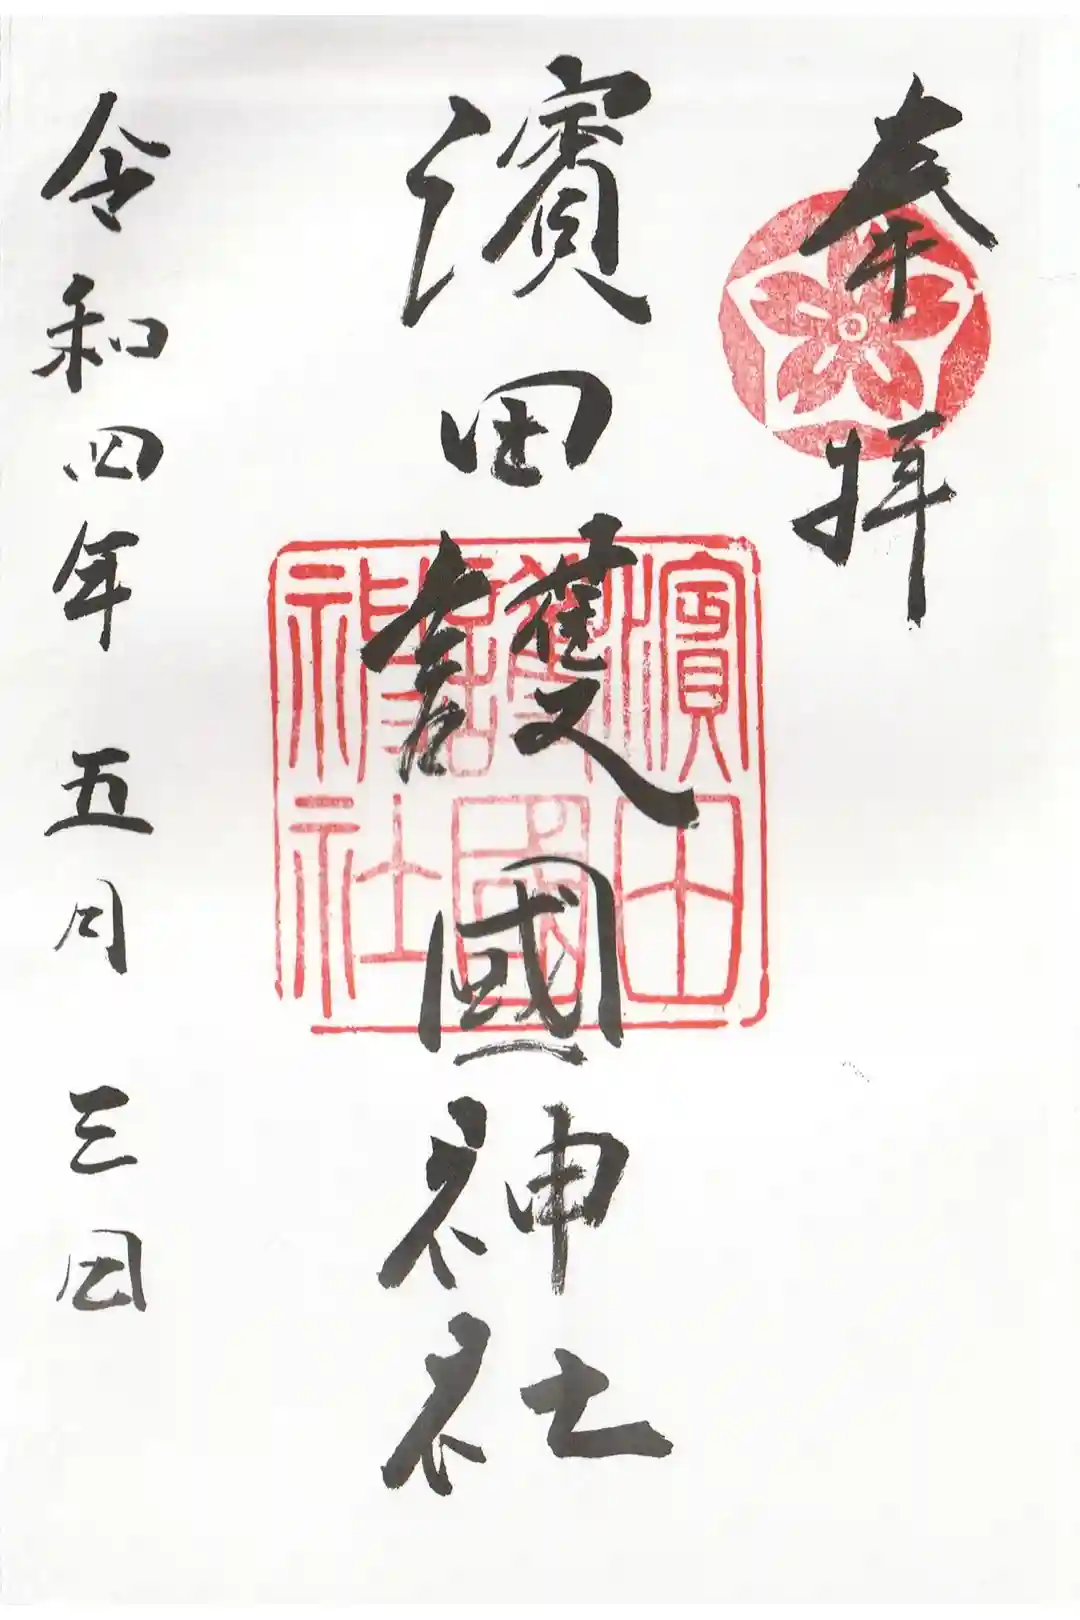 奉拝
濱田護國神社
濱田護國神社
令和四年五月三日